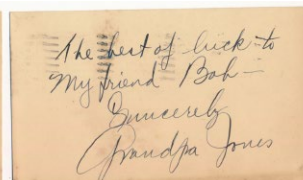 The best of luck to
My friend Bob —
Sincerely
Grandpa Jones